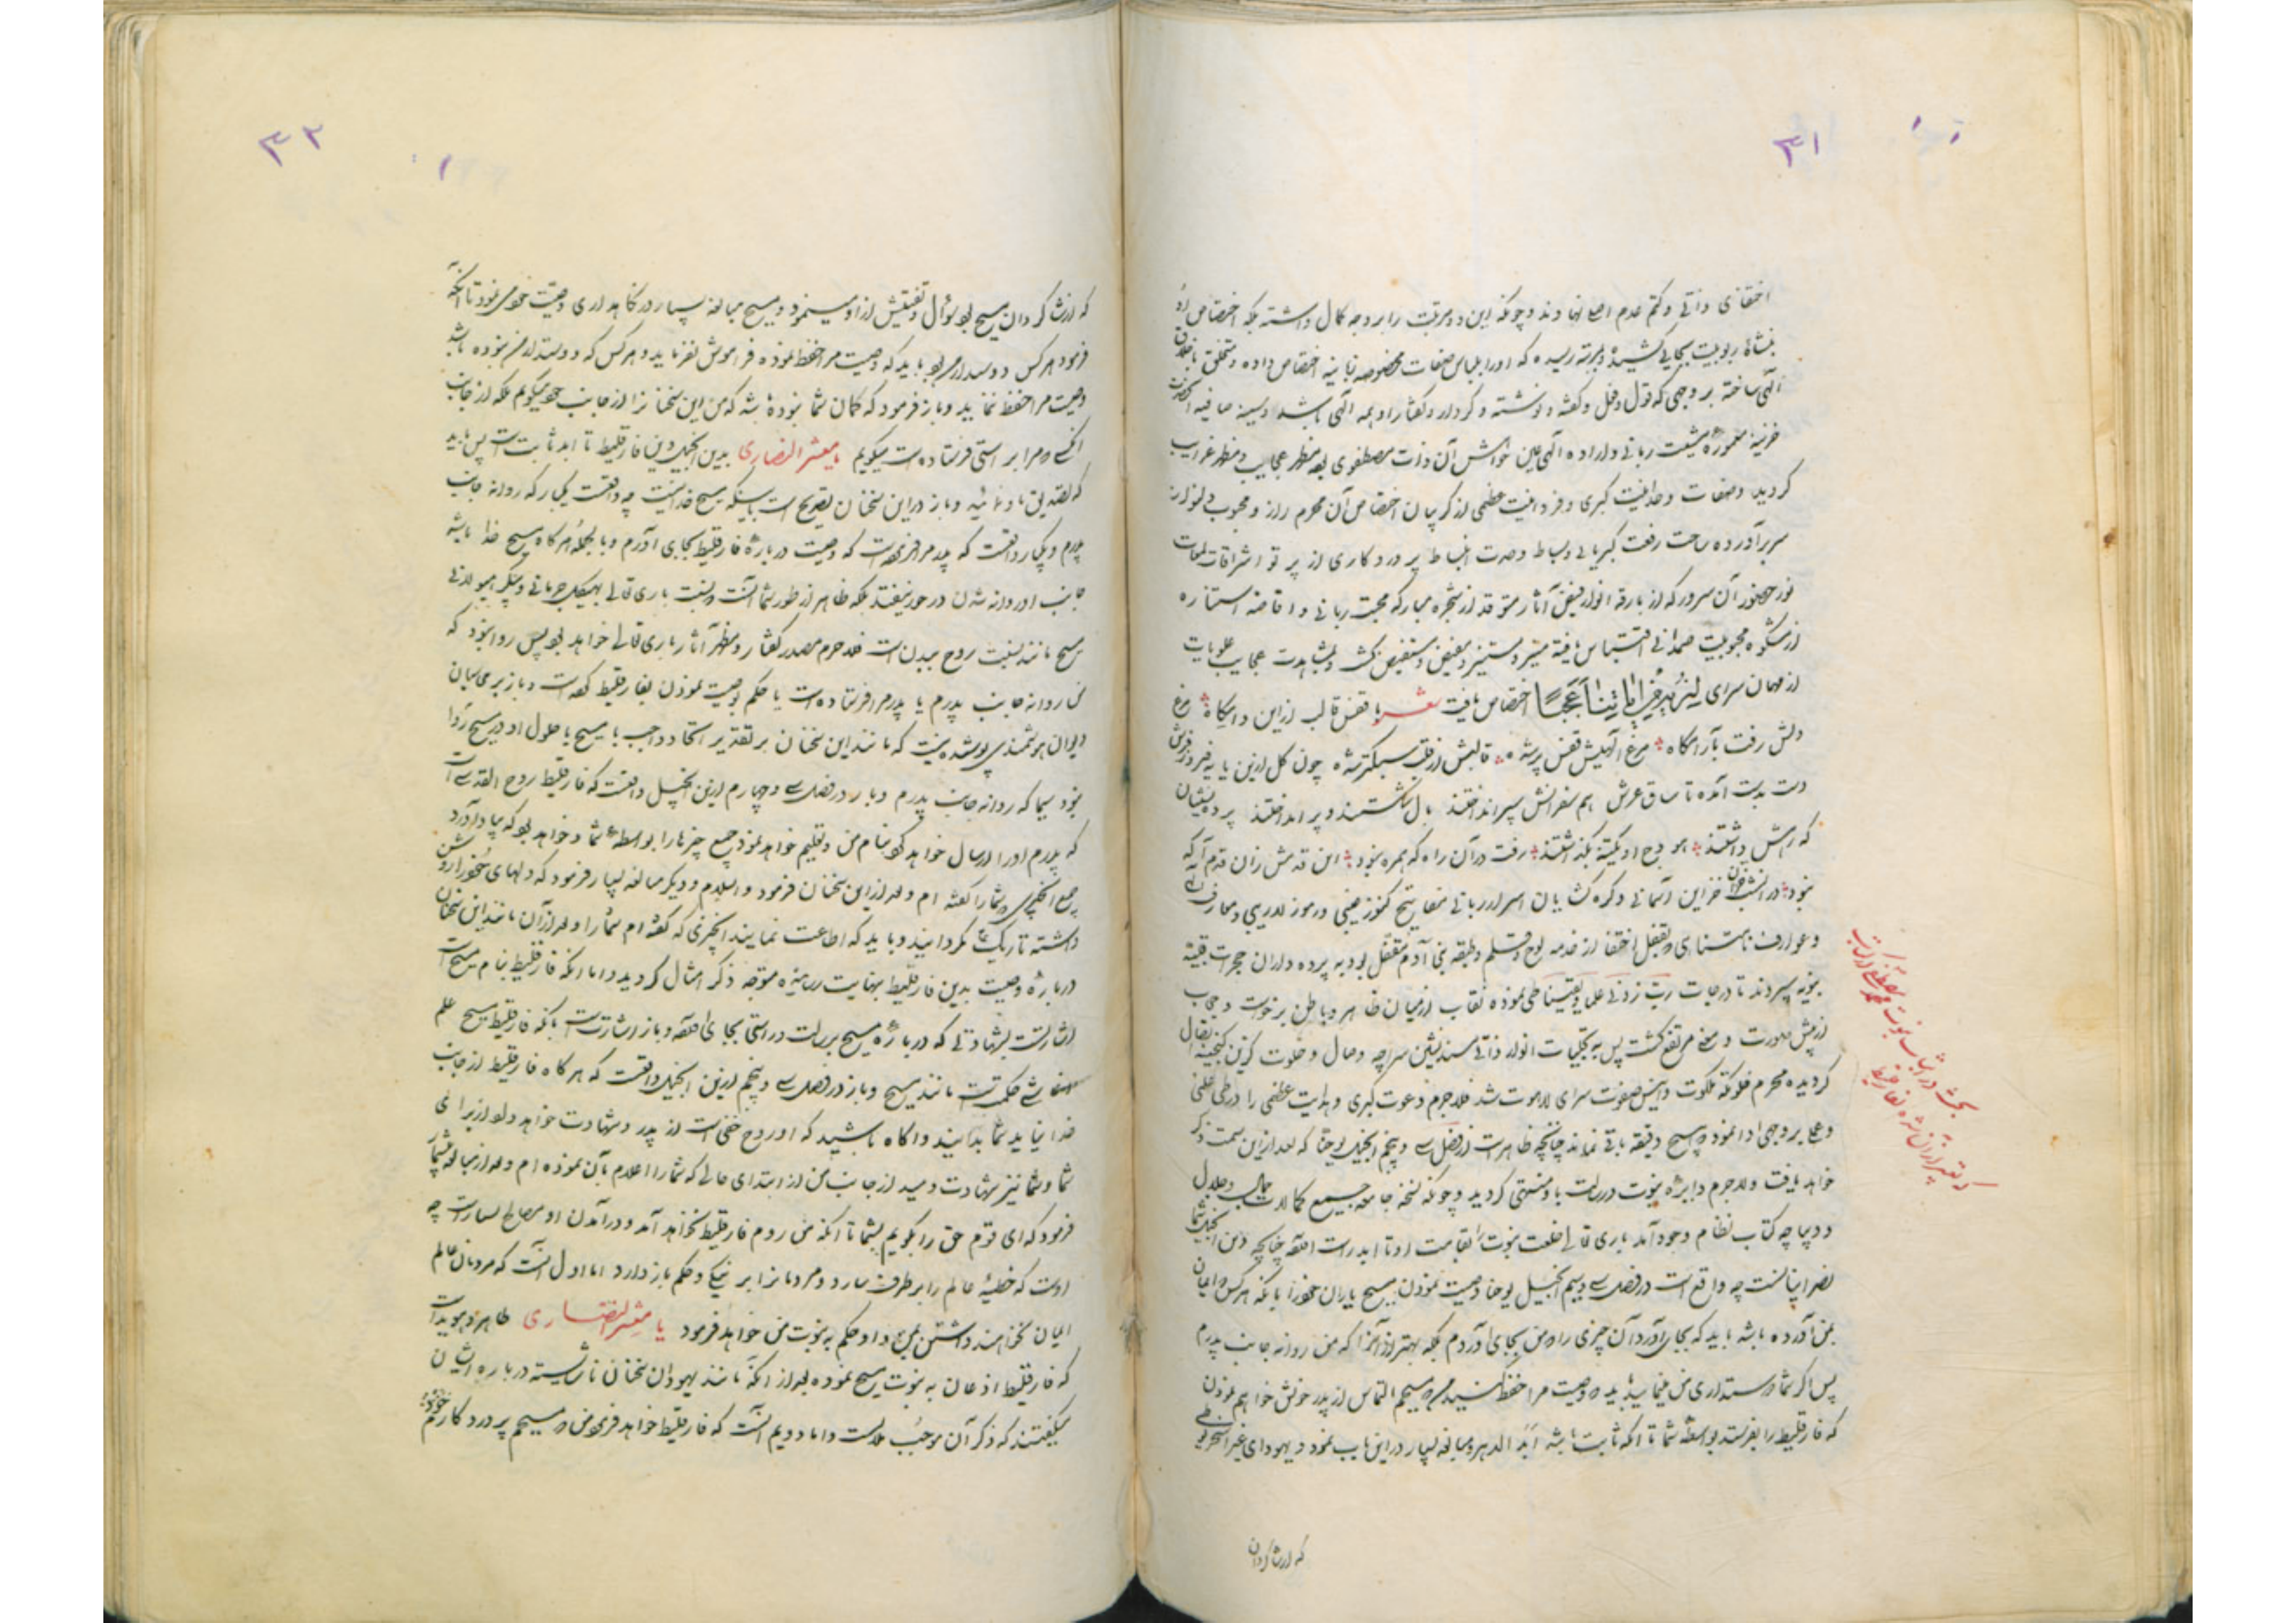 ۳۱
اختفای ذاتی و کتم عدم اصل نهاوند و چونکه این دو مرتبت را بر وجه کمال داشته بلکه اختصاص او
بنشاهٔ ربوبیت بجایی کشیده و بمرتبه رسیده که او را بلباس صفات مخصوصه ربانیه اختصاص داده و متخلق باخلاق
الهی ساخته بر وجهی که قول و فعل و گفته و نوشته و کردار و گفتار او همه الهی باشد و سینه صافیه آنحضرت
خزینه معموره مشیت ربانی و اراده الهی عین خواهش آن ذات مصطفوی بوده مظهر عجایب و مظهر غرایب
گردید و صفات وحدانیت کبری و فردانیت عظمی از گریبان اختصاص آن محرم راز و محبوب دلنواز
سر برآورده ساحت رفعت کبریایی و بساط وحدت انبساط پروردکاری از پرتو اشراقات لمعات
نور حضور آن سرور که از بارقه انوار فیض آثار متوقد از شجره مبارکه محبت ربانی و افاضه استناره
از مشکوه محبوبیت صمدانی اقتباس یافته منیر و مستنیر و مفیض و مستفیض گشت و بمشاهدت عجایب علویات
از مهمان سرای لنریه من آیاتنا عجبا اختصاص یافت شعر با قفس قالب ازین دامگاه مرغ
دلش رفت بآرامگاه مرغ الهیش قفس پر شده قالبش از قلب سبکتر شده چون گل ازین پایه فیروزه فرش
دست بدست آمده تا ساق عرش هم سفرانش سپر انداختند بال شکستند و پر انداختند پرده نشینان
که رهش داشتند هودج او یکتنه بگذاشتند رفت در آن راه که همره نبود این قدمش زان قدم آگه
نبود در آنشب خزاین آسمانی و گره گشایان اسرار ربانی مفاتیح کنوز غیبی و رموز لاریبی و معارف
و عوارف نامتناهی که بقفل اختفا از خدمه لوح و قلم و طبقه بنی آدم مقفل بود به پرده داران حجرات قلبیه
نبویه سپردند تا درجات رب زدنی علما و یقینا طی نموده نقاب از میان ظاهر و باطن برخواست و حجاب
از پیش صورت و معنی مرتفع گشت پس به تجلیات انوار ذاتی مسندنشین سراچه وصال و خلوت گزین گنجینه اتصال
گردیده محرم خلوتکه ملکوت و انیس صفوت سرای لاهوت شد فلاجرم دعوت کبری و هدایت عظمی را در طی علمی
و عملی بر وجهی ادا نمود که هیچ دقیقه باقی نماند چنانچه ظاهرست از فصل سی و پنجم انجیل یوحنا که بعد ازین سمت ذکر
خواهد یافت و لاجرم دایره نبوت و رسالت باو منتهی گردید و چونکه نسخه جامعه جمیع کمالات جمال و جلال
و دیباچه کتاب نظام وجود آمد باری تعالی خلعت نبوت را بقامت او تا ابد راست افتد چنانچه در متن انجیل شما
نصرانیانست چه واقع است در فصل سی و سیم انجیل یوحنا وصیت نمودن مسیح یاران خود را بانکه هرکس که ایمان
بمن آورده باشد باید که بجای آورد آن چیزی را که من بجای آوردم بلکه بهتر از آنرا که من روانه جانب پدرم
پس اگر شما دوستداری من مینمایید باید که وصیت مرا حفظ کنید من که مسیحم التماس از پدر خویش خواهم نمودن
که فارقلیط را بفرستد بواسطه شما تا آنکه ثابت باشد ابد الدهر و مبالغه بسیار درین باب نمود و یهودای غیر اسخریوطی
که از شاگردان
بحث در اثبات نبوت محمد مصطفی از کتاب
که تعبیر از آن شده بفارقلیط
۳۲
که از شاگردان مسیح بود سؤال و تفتیش ازو مینمود و مسیح مبالغه بسیار در نگاهداری وصیت خود می نمود تا آنکه
فرمود هرکس دوستدار من بود باید که وصیت مرا حفظ نموده فراموش نفرماید و هرکس که دوستدار من نبوده باشد
وصیت مرا حفظ ننماید و باز فرمود که گمان شما نبوده باشد که من این سخنانرا از جانب خود میگویم بلکه از جانب
آنکس که مرا براستی فرستاده است میگویم یا معشر النصاری بدین انجیل دین فارقلیط تا ابد ثابت است پس باید
که تصدیق باو نمائید و باز درین سخنان تصریح است باینکه مسیح خدا نیست چه واقعست یکبار که روانه جانب
پدرم و یکبار واقعست که پدر مرا فرموده است که وصیت درباره فارقلیط بجای آورم و بالجمله هر گاه مسیح خدا باشد
جانب او روانه شدن درخور نیفتد بلکه ظاهر از طور شما آنست که نسبت باری تعالی بهیکل جسمانی و پیکر هیولانی
مسیح مانند نسبت روح ببدن است فلاجرم مصدر گفتار و مظهر آثار باری تعالی خواهد بود پس روا نبود که
من روانه جانب پدرم یا پدرم مرا فرستاده است یا حکم بوصیت نمودن بفارقلیط کرده است و باز بر مدعیان
دیوان هوشمندی پوشیده نیست که مانند این سخنان بر تقدیر اتحاد واجب با مسیح یا حلول او در مسیح روا
نبود سیما که روانه جانب پدرم و باز در فصل سی و چهارم ازین انجیل واقعست که فارقلیط روح القدسی است
که پدرم او را ارسال خواهد کرد بنام من و تعلیم خواهد نمود جمیع چیزها را بواسطه شما و خواهد بود که بیاد آورد
جمیع آنچه من شما را گفته ام و بعد ازین سخنان فرمود والسلام و دیگر مبالغه بسیار فرمود که دلهای خود را روشن
داشته تاریک نگردانید و باید که اطاعت نمایید آنچیزی که گفته ام شما را و بعد از آن مانند این سخنان
درباره وصیت بدین فارقلیط بنهایت رسانیده متوجه ذکر امثال گردید و اما آنکه فارقلیط بنام مسیح است
اشارتست بشهادتی که درباره مسیح برسالت و راستی بجای افتد و باز اشارتست بانکه فارقلیط مسیح علم
مانند مسیح و باز در فصل سی و پنجم ازین انجیل واقعست که هر گاه فارقلیط از جانب
خدا بیاید شما بدانید و آگاه باشید که او روح حق است از پدر و شهادت خواهد داد از برای
شما و شما نیز شهادت دهید از جانب من از ابتدای حالی که شما را اعلام بآن نموده ام و بعد از مبالغه بسیار
فرمود که ای قوم حق را بگویم بشما تا آنکه من نروم فارقلیط نخواهد آمد و در آمدن او مصالح بسیارست چه
اوست که خطیهٔ عالم را بر طرف سازد و مردمانرا بر نیکی و حکم باز دارد اما اول آنست که مردمان عالم
ایمان نخواهند داشتن بمن و او حکم به نبوت من خواهد فرمود یا معشر النصاری ظاهر و هویداست
که فارقلیط اذعان به نبوت مسیح نموده بعد از آنکه مانند یهودان سخنان ناشایسته درباره ایشان
میگفتند که ذکر آن موجب ملالست و اما دویم آنست که فارقلیط خواهد فرمود من که مسیحم پروردکار خود